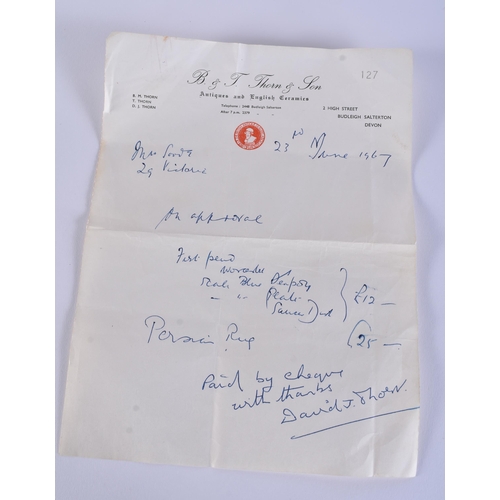 127
B. & T. Thorn & Son
Antiques and English Ceramics
B. M. THORN
T. THORN
D. J. THORN
Telephone : 2448 Budleigh Salterton
After 7 p.m.: 2279
2 HIGH STREET
BUDLEIGH SALTERTON
DEVON
23rd June 1967
Mrs
29 Victoria
On approval
First period
Worcester
Scale Blue
" " Plate
Sauce
£12 —
Persian Rug
£25 —
Paid by cheque
with thanks
David J. Thorn.